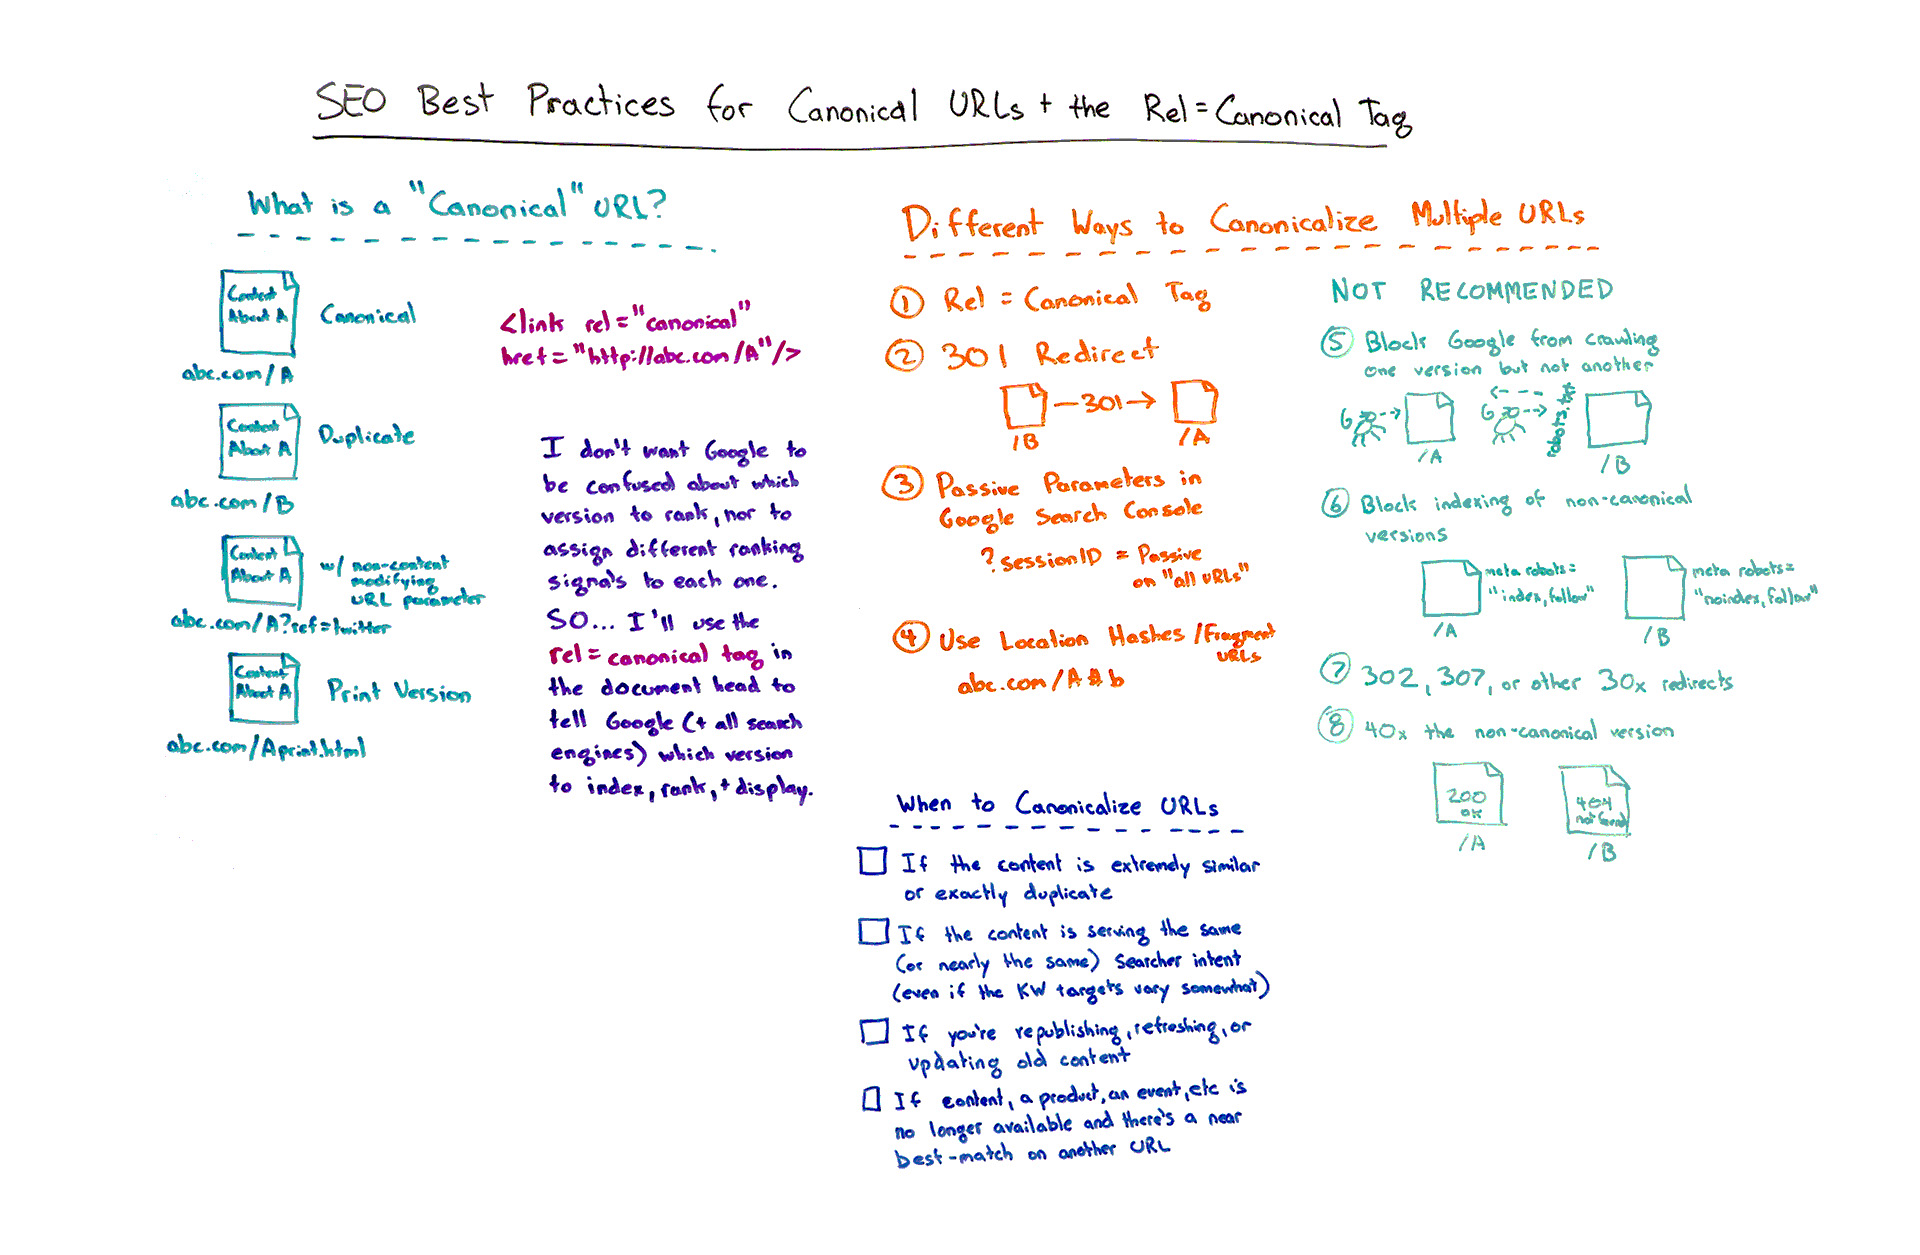 SEO Best Practices for Canonical URLs + the Rel=Canonical Tag
What is a "Canonical" URL?
Content
About A
Canonical
abc.com/A
Content
About A
Duplicate
abc.com/B
Content
About A
w/ non-content
modifying
URL parameter
abc.com/A?ref=twitter
Content
About A
Print Version
abc.com/Aprint.html
<link rel="canonical"
href="http://abc.com/A"/>
I don't want Google to
be confused about which
version to rank, nor to
assign different ranking
signals to each one.
SO... I'll use the
rel=canonical tag in
the document head to
tell Google (+ all search
engines) which version
to index, rank, + display.
Different Ways to Canonicalize Multiple URLs
① Rel = Canonical Tag
② 301 Redirect
301
/B
/A
③ Passive Parameters in
Google Search Console
?sessionID = Passive
on "all URLs"
④ Use Location Hashes/Fragment
URLs
abc.com/A#b
NOT RECOMMENDED
⑤ Block Google from crawling
one version but not another
G
/A
G
robots.txt
/B
⑥ Block indexing of non-canonical
versions
meta robots=
"index,follow"
/A
meta robots=
"noindex,follow"
/B
⑦ 302, 307, or other 30x redirects
⑧ 40x the non-canonical version
200
OK
/A
404
not found
/B
When to Canonicalize URLs
If the content is extremely similar
or exactly duplicate
If the content is serving the same
(or nearly the same) searcher intent
(even if the KW targets vary somewhat)
If you're republishing, refreshing, or
updating old content
If content, a product, an event, etc is
no longer available and there's a near
best-match on another URL